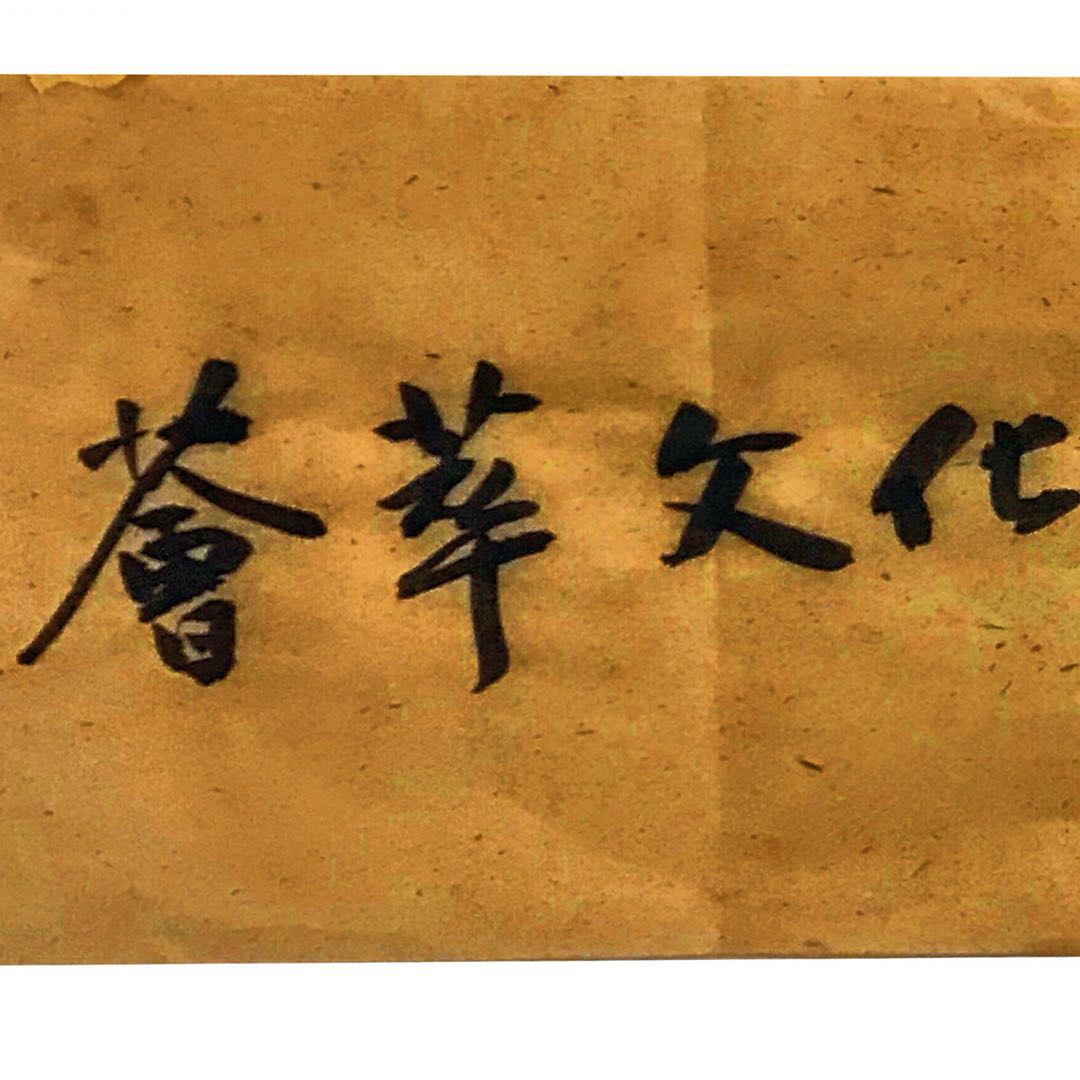 薈萃文化